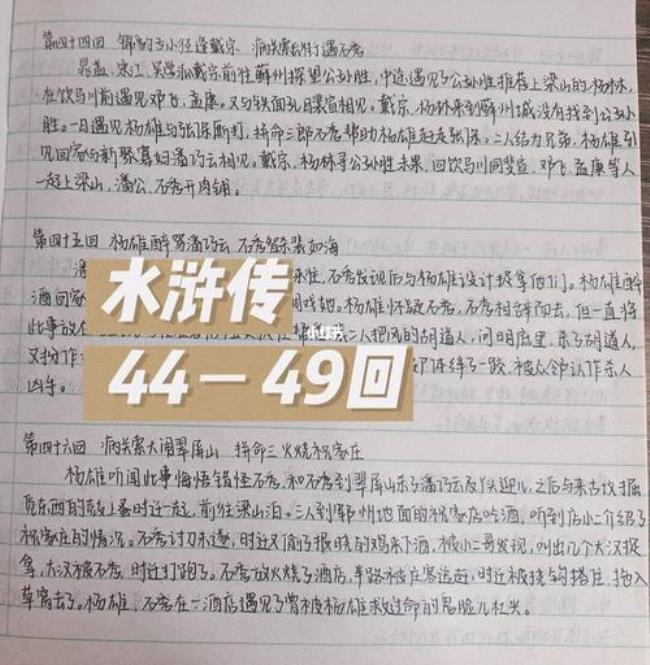 第四十四回 锦豹子小径逢戴宗 病关索长街遇石秀
晁盖、宋江、吴学派戴宗前往蓟州探望公孙胜,中途遇见了公孙胜推荐上梁山的杨林,
在饮马川前遇见邓飞、孟康。又与铁面孔目裴宣相见。戴宗、杨林来到蓟州城没有找到公孙
胜。一日遇见杨雄与张保厮打,拼命三郎石秀帮助杨雄赶走张保。二人结为兄弟,杨雄引
见回家与新娶寡妇潘巧云相见,戴宗、杨林寻公孙胜未果,回饮马川同裴宣、邓飞、孟康等人
一起上梁山,潘公、石秀开肉铺。
第四十五回 杨雄醉骂潘巧云 石秀智杀裴如海
潘 来往,石秀发现后与杨雄设计捉拿他们。杨雄醉
酒回家 调戏她。杨雄怀疑石秀,石秀相辞而去,但一直将
此事放在 二人把风的胡道人,问明底里,杀了胡道人,
又扮作 绊了一跤,被众邻认作杀人
凶手。
水浒传
小红书
44-49回
第四十六回 病关索大闹翠屏山 拼命三火烧祝家庄
杨雄听闻此事悔悟错怪石秀,和石秀到翠屏山杀了潘巧云及丫头迎儿,之后与来古坟掘
觅东西的鼓上蚤时迁一起,前往梁山泊。三人到郓州地面的祝家店吃酒,听到店小二介绍了
祝家庄的情况。石秀讨刀未遂,时迁又偷了报晓的鸡来下酒,被小二哥发现,叫出几个大汉捉
拿,大汉被石秀、时迁打跑了。石秀放火烧了酒店,半路被庄客追赶,时迁被挠钩搭住,拖入
草窝去了。杨雄、石秀在一酒店遇见了曾被杨雄救过命的鬼脸儿杜兴。